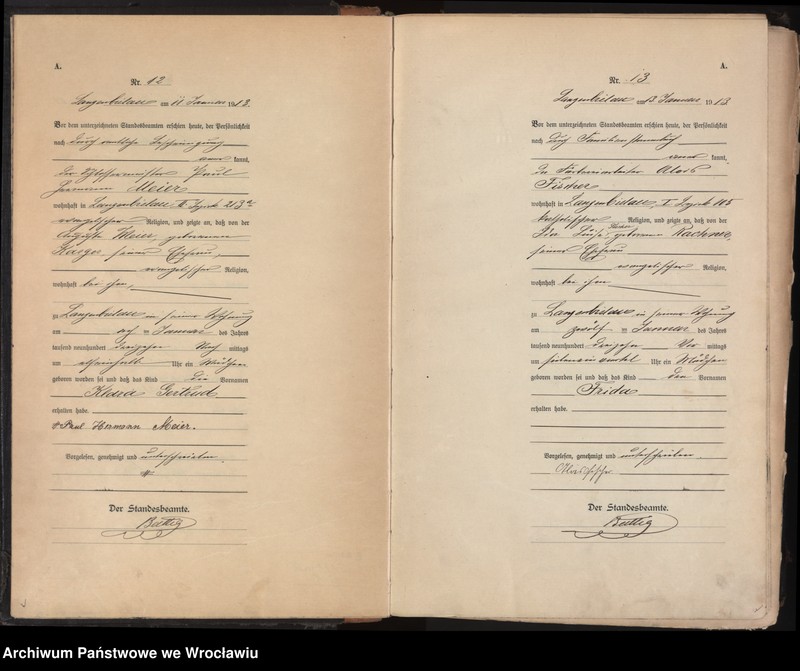 A.
Nr. 12
Langenbielau am 11 Januar 1913.
Vor dem unterzeichneten Standesbeamten erschien heute, der Persönlichkeit
nach durch amtliche Bescheinigung
aner kannt,
der Schlossermeister Paul
Hermann Meier
wohnhaft in Langenbielau II Bezirk 213
evangelischer Religion, und zeigte an, daß von der
Auguste Meier, geborenen
seiner Ehefrau,
evangelischer Religion,
wohnhaft bei ihm,
zu Langenbielau in seiner Wohnung
am acht ten Januar des Jahres
tausend neunhundert dreizehn Nach mittags
um Uhr ein Mädchen
geboren worden sei und daß das Kind die Vornamen
Gertrud
erhalten habe.
Paul Hermann Meier.
Vorgelesen, genehmigt und unterschrieben.
Der Standesbeamte.
A.
Nr. 13
Langenbielau am 13 Januar 1913
Vor dem unterzeichneten Standesbeamten erschien heute, der Persönlichkeit
nach durch Familienstammbuch
aner kannt,
der Färbereiarbeiter Alois
Fischer
wohnhaft in Langenbielau, I Bezirk 105
katholischer Religion, und zeigte an, daß von der
Ida Luise Fischer geborenen Rachner,
seiner Ehefrau
evangelischer Religion,
wohnhaft bei ihm
zu Langenbielau in seiner Wohnung
am zwölf ten Januar des Jahres
tausend neunhundert dreizehn Vor mittags
um Uhr ein Mädchen
geboren worden sei und daß das Kind den Vornamen
Frida
erhalten habe.
Vorgelesen, genehmigt und unterschrieben.
Alois Fischer
Der Standesbeamte.
Archiwum Państwowe we Wrocławiu